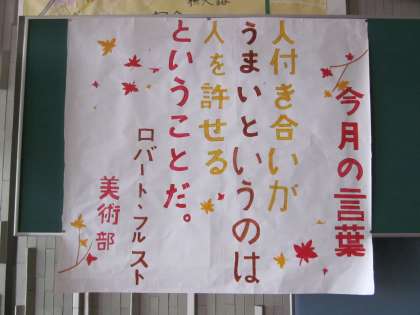 今月の言葉
人付き合いが
うまいというのは
人を許せる
ということだ。
ロバート・フルスト
美術部